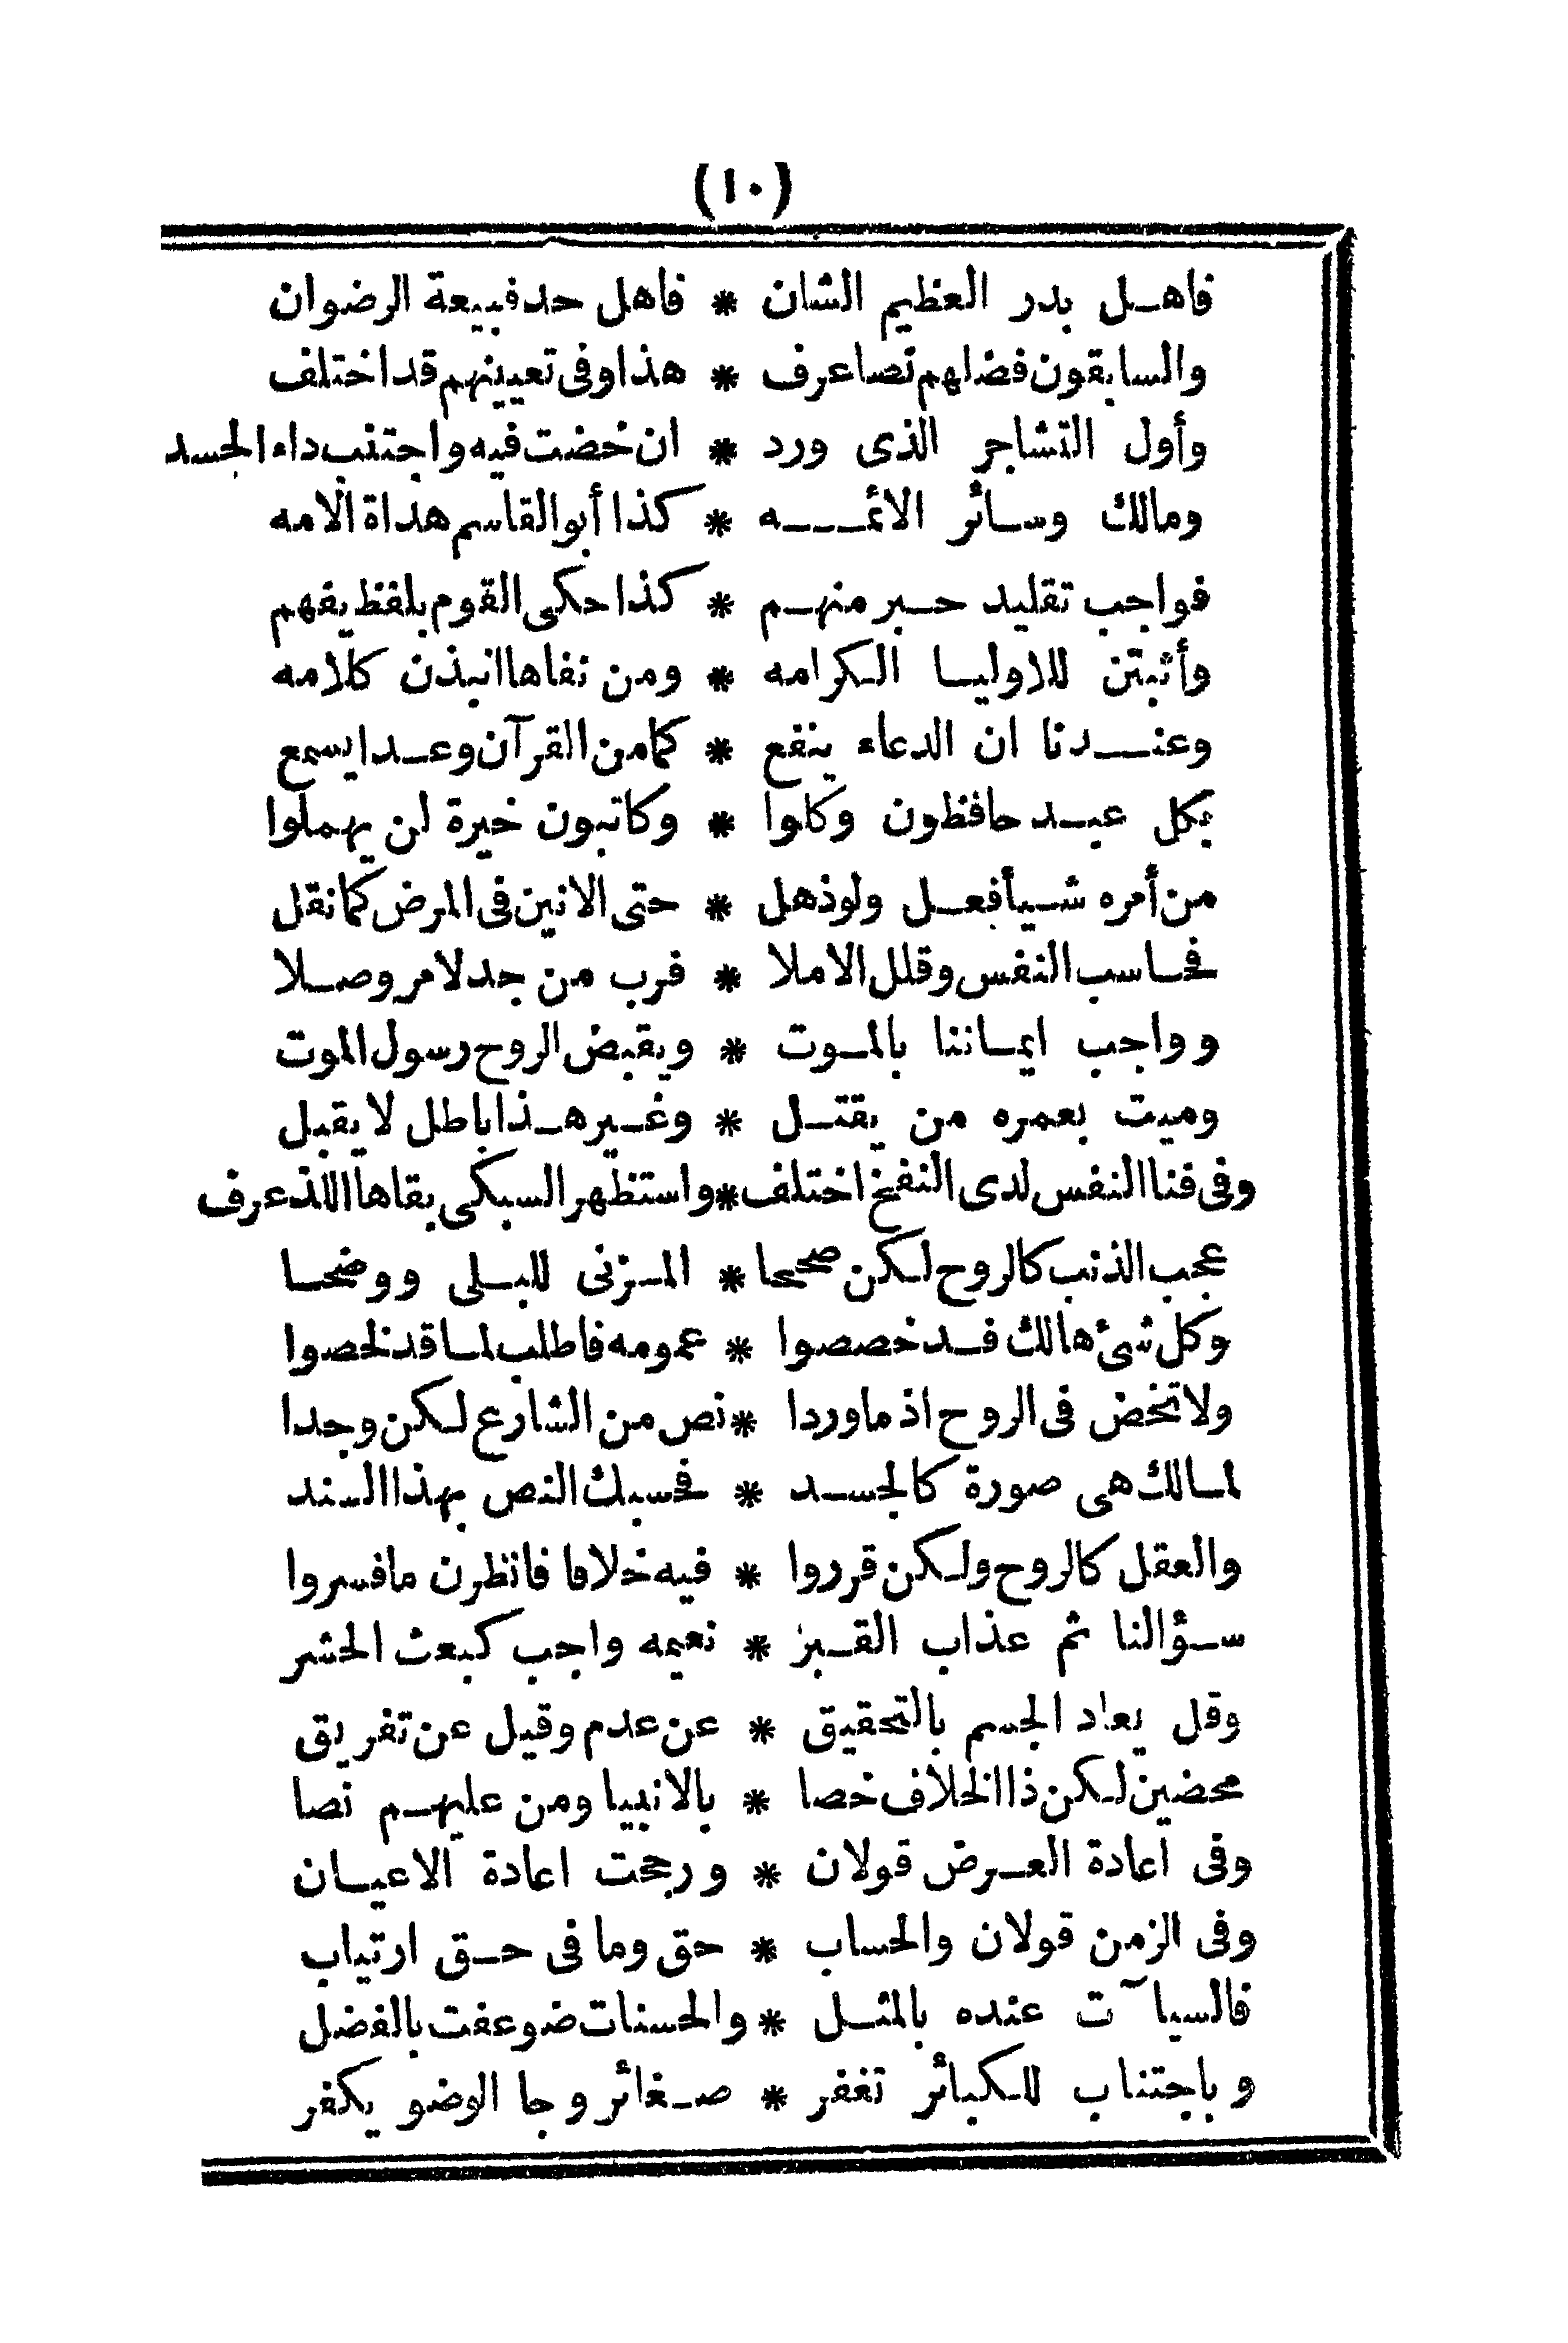 (١٠)
فاهل بدر العظيم الشان * فاهل حد فبيعة الرضوان
والسابقون فضلهم نصا عرف * هذا وفى تعيينهم قد اختلف
وأول التشاجر الذى ورد * ان خضت فيه واجتنب داء الحسد
ومالك وسائر الائمه * كذا أبو القاسم هداة الامه
فواجب تقليد حبر منهم * كذا حكى القوم بلفظ يفهم
وأثبتن للاوليا الكرامه * ومن نفاها انبذن كلامه
وعندنا ان الدعاء ينفع * كما من القرآن وعدا يسمع
بكل عبد حافظون وكلوا * وكاتبون خيرة لن يهملوا
من أمره شيأ فعل ولو ذهل * حتى الانين فى المرض كما نقل
فحاسب النفس وقلل الاملا * فرب من جد لامر وصلا
وواجب ايماننا بالموت * ويقبض الروح رسول الموت
وميت بعمره من يقتل * وغير هذا باطل لا يقبل
وفى فنا النفس لدى النفخ اختلف * واستظهر السبكى بقاها اللذ عرف
عجب الذنب كالروح لكن صححا * المزنى للبلى ووضحا
وكل شئ هالك قد خصصوا * عمومه فاطلب لما قد لخصوا
ولا تخض فى الروح اذ ما وردا * نص من الشارع لكن وجدا
لمالك هى صورة كالجسد * فحسبك النص بهذا السند
والعقل كالروح ولكن قرروا * فيه خلافا فانظرن ما فسروا
سؤالنا ثم عذاب القبر * نعيمه واجب كبعث الحشر
وقل يعاد الجسم بالتحقيق * عن عدم وقيل عن تفريق
محضين لكن ذا الخلاف خصا * بالانبيا ومن عليهم نصا
وفى اعادة العرض قولان * ورجحت اعادة الاعيان
وفى الزمن قولان والحساب * حق وما فى حق ارتياب
فالسيآت عنده بالمثل * والحسنات ضوعفت بالفضل
وباجتناب للكبائر تغفر * صغائر وجا الوضو يكفر